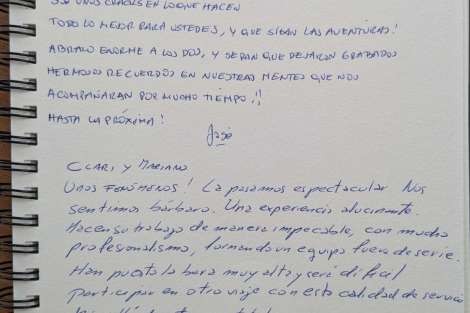 SOI UNOS CRACKS EN LO QUE HACEN
TODO LO MEJOR PARA USTEDES, Y QUE SIGAN LAS AVENTURAS!
ABRAZO ENORME A LOS DOS, Y SEPAN QUE DEJARON GRABADOS
HERMOSOS RECUERDOS EN NUESTRAS MENTES QUE NOS
ACOMPAÑARAN POR MUCHO TIEMPO!!
HASTA LA PRÓXIMA!
José
CLARI Y MARIANO
UNOS FENÓMENOS! La pasamos espectacular Nos
sentimos bárbaro. Una experiencia alucinante.
Hacen su trabajo de manera impecable, con mucho
profesionalismo, formando un equipo fuera de serie.
Han puesto la bara muy alta y será difícil
participar en otro viaje con esta calidad de servicio